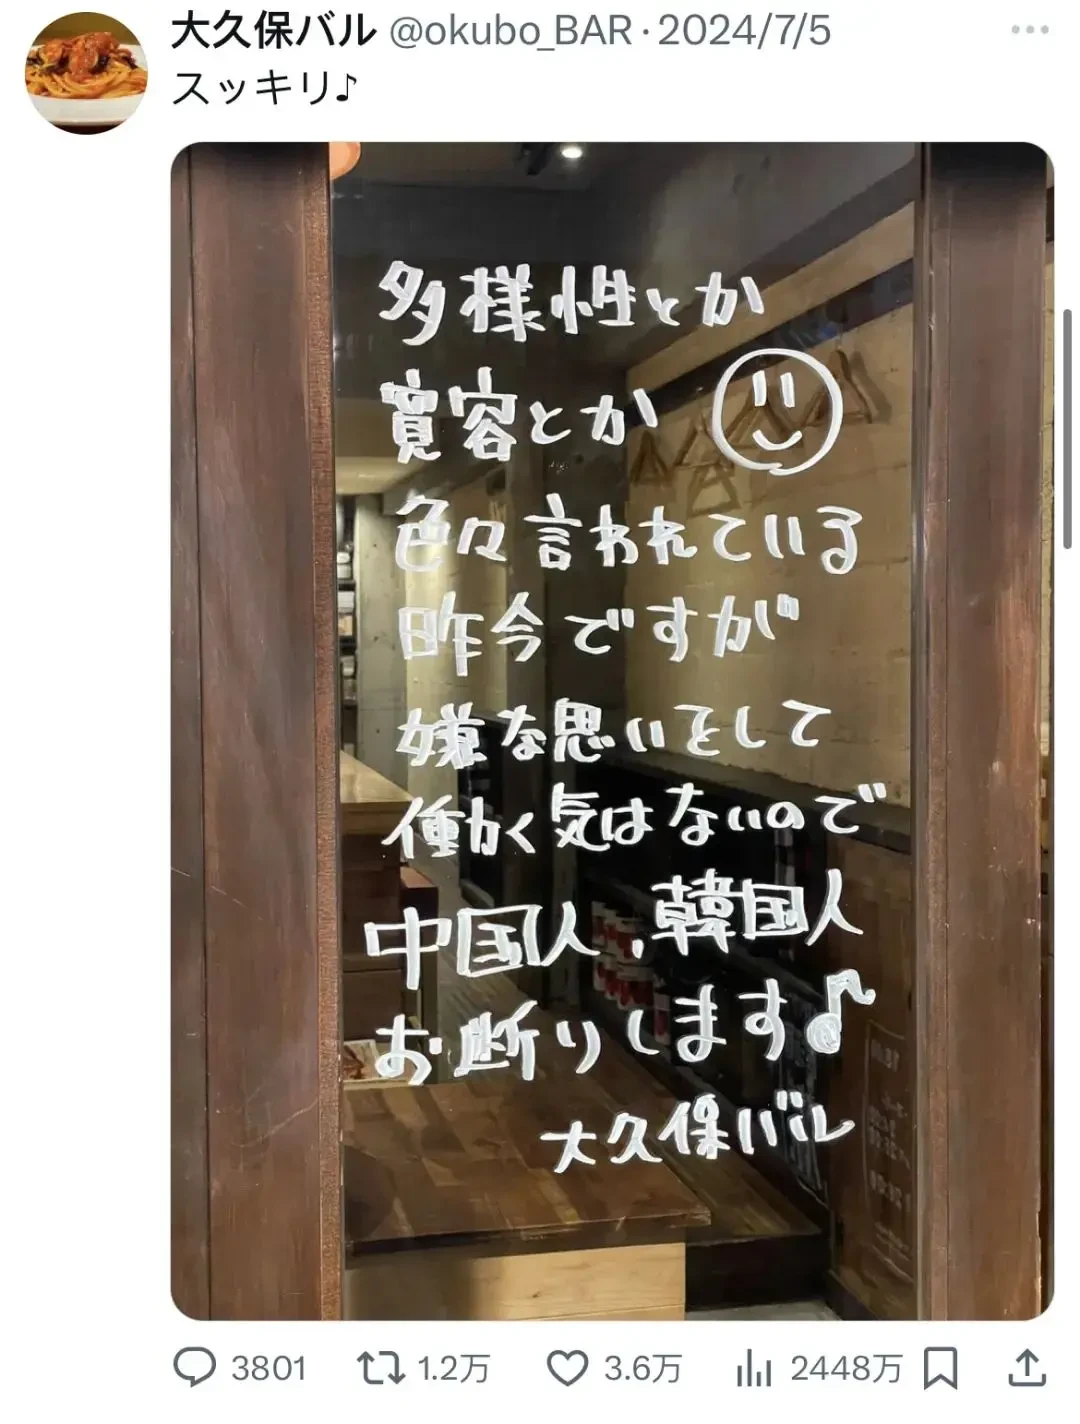 大久保バル @okubo_BAR · 2024/7/5
スッキリ♪
多様性とか
寛容とか
色々言われている
昨今ですが
嫌な思いをして
働く気はないので
中国人、韓国人
お断りします♪
大久保バル
3801 1.2万 3.6万 2448万